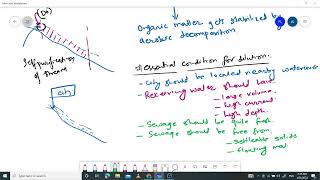 (Do)
Self purification
of
Stream
City
Organic matter gets stabilized by
aerobic decomposition
Essential condition for dilution.
- City should be located nearby
- Receiving water should have
- large volume.
- high current.
- high depth.
- Sewage should be quite fresh.
- Sewage should be free from.
- settleable solids
- floating mat